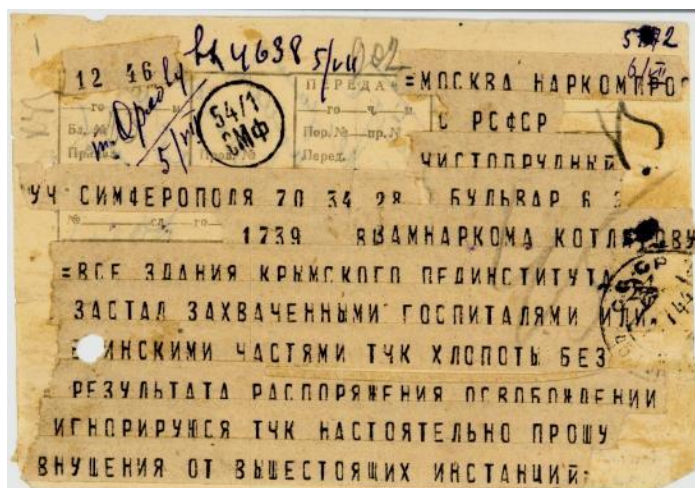 вх 4638 5/VII
12 16
т. Орлову
5/VII
54/1
СМФ
ПЕРЕДА
=МОСКВА НАРКОМПРОС
РСФСР
ЧИСТОПРУДНЫЙ
УЧ СИМФЕРОПОЛЯ 70 34 28 БУЛЬВАР 6
1739 ЗАМНАРКОМА
=ВСЕ ЗДАНИЯ КРЫМСКОГО ПЕДИНСТИТУТА
ЗАСТАЛ ЗАХВАЧЕННЫМИ ГОСПИТАЛЯМИ ИЛИ
ИНСКИМИ ЧАСТЯМИ ТЧК ХЛОПОТЫ БЕЗ
РЕЗУЛЬТАТА РАСПОРЯЖЕНИЯ ОСВОБОЖДЕНИИ
ИГНОРИРУЮСЯ ТЧК НАСТОЯТЕЛЬНО ПРОШУ
ВНУШЕНИЯ ОТ ВЫШЕСТОЯЩИХ ИНСТАНЦИЙ